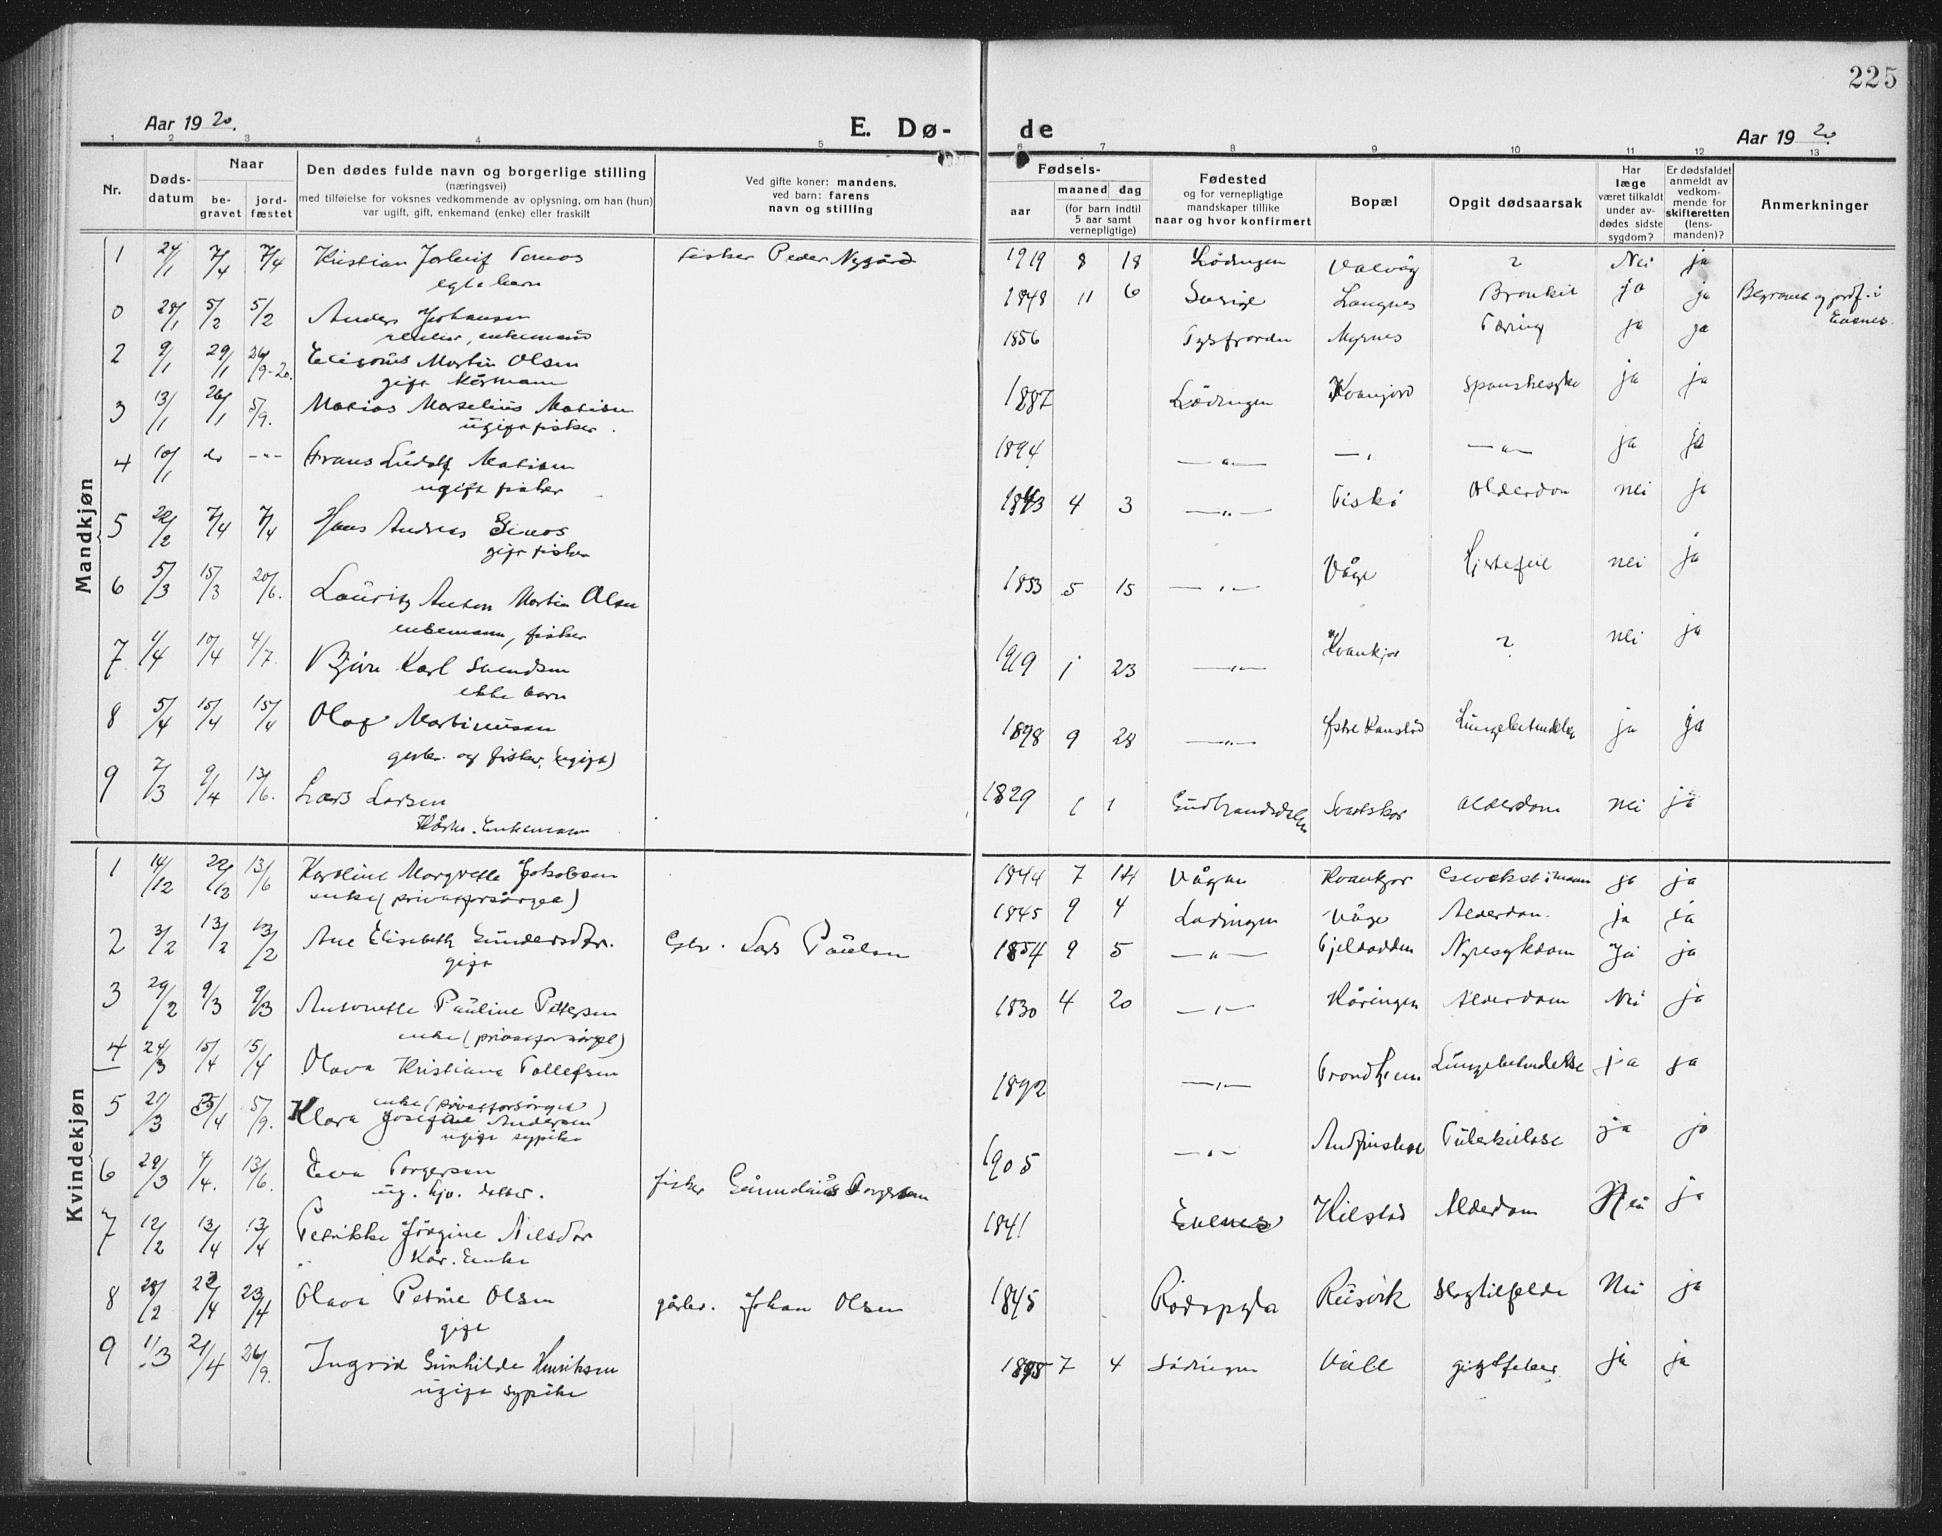 225
Aar 1920.
E. Dø-
de
Aar 1920.
1 2 3 4 5 6 7 8 9 10 11 12 13
Nr.
Døds-
datum
Naar
be-
gravet
jord-
fæstet
Den dødes fulde navn og borgerlige stilling
(næringsvei)
med tilføielse for voksnes vedkommende av oplysning, om han (hun)
var ugift, gift, enkemand (enke) eller fraskilt
Ved gifte koner: mandens,
ved barn: farens
navn og stilling
Fødsels-
aar
maaned dag
(for barn indtil
5 aar samt
vernepligtige)
Fødested
og for vernepligtige
mandskaper tillike
naar og hvor konfirmert
Bopæl
Opgit dødsaarsak
Har
læge
været tilkaldt
under av-
dødes sidste
sygdom?
Er dødsfaldet
anmeldt av
vedkom-
mende for
skifteretten
(lens-
manden)?
Anmerkninger
Mandkjøn
1 24/1 7/4 7/4 Kristian fisker Peder Nygård 1919 8 18 Lødingen Valvåg ? Nei ja
egte barn
0 28/1 5/2 5/2 Anders Johansen 1848 11 6 Sverige Langnes Bronkit ja ja Begravet og jordf. i
enkemann Evenes.
2 9/1 29/1 26/9-20. Martin Olsen 1856 Tysfjorden Myrnes Tæring ja ja
gift Kårmann
3 13/1 26/1 5/9. Matias Marselius Matisen 1887 Lødingen spanskesyke ja ja
ugift fisker.
4 10/1 do -"- Frans Ludolf Matisen 1894 -"- -"- -"- ja ja
ugift fisker
5 22/2 7/4 7/4 Hans Andreas 1843 4 3 -"- Fiskø Alderdom nei ja
gift fisker
6 5/3 15/3 20/6. Lauritz Anton Martin Olsen 1853 5 15 -"- Våge Hjertefeil nei ja
enkemann, fisker
7 1/4 10/4 4/7. Bjørn Karl Svendsen 1919 1 23 -"- ? nei ja
ekte barn
8 5/4 15/4 15/4 Olaf Martinusen 1898 9 28 -"- Østre Kanstad Lungebetændelse ja ja
gårbr. og fisker. (ugift)
9 7/3 9/4 13/6. Lars Larsen 1829 1 1 Gudbrandsdalen Svartskar Alderdom nei ja
Enkemann
Kvindekjøn
1 14/12 13/6 Karoline Margrette Jakobsen 1844 7 14 Vågan Kvankjor ja ja
enke (privatforsørget)
2 3/2 13/2 13/2 Ane Elisabeth Gundersdtr. Gbr. Lars Paulsen 1845 9 4 Lødingen Våge Alderdom. ja ja
gift
3 29/2 9/3 9/3 Antonette Pauline Pettersen 1854 9 5 -"- Fjeldodden Nyresykdom ja ja
enke (privatforsørget)
4 24/3 15/4 15/4 Olava Kristiane Tollefsen 1830 4 20 -"- Kåringen Alderdom Nei ja
enke (privatforsørget)
5 20/3 5/9. Klara Josefine Andersen 1892 -"- Trondhjem Lungebetendelse ja ja
ugift sypike
6 29/3 4/4. 13/6. Eva Torgersen fisker Torgersen 1905 -"- Tuberkulose ja ja
ug. hjv. datter.
7 12/2 13/4 13/4 Petrikke Jørgine Nilsdtr 1841 Evenes Kilstad Alderdom Nei ja
Kår. Enke
8 28/2 23/4 23/4 Olava Petrine Olsen gårbr. Johan Olsen 1845 Rødøy Rusvik Slagtilfelde Nei ja
gift
9 11/3 21/4 26/9. Ingrid Gunhilde Henriksen 1895 7 4 Lødingen Våll giktfeber ja ja
ugift sypike